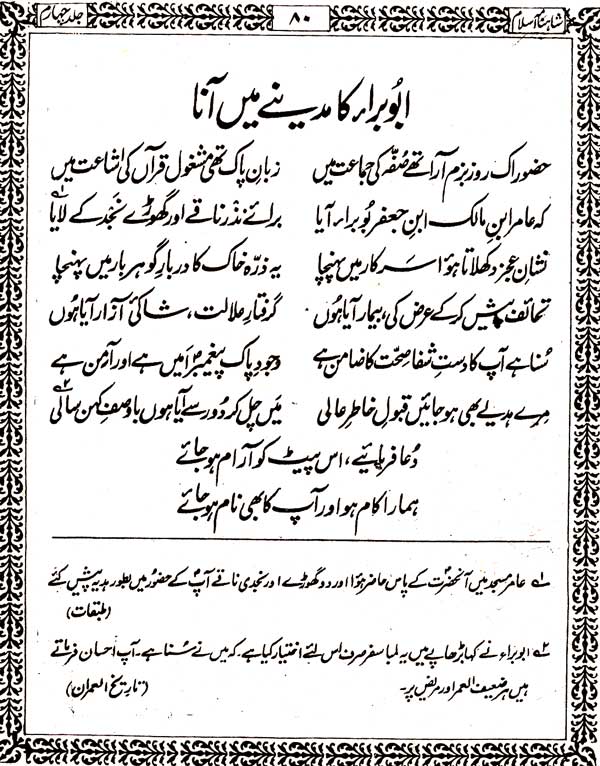 شاہنامہ اسلام ۸۰ جلد چہارم
ابُو براء کا مدینے میں آنا
حضور اک روز بزم آرا تھے صُفّہ کی جماعت میں زبانِ پاک تھی مشغول قرآں کی اشاعت میں
کہ عامر ابنِ مالک ابنِ جعفر بُو براء آیا برائے نذر ناقے اور گھوڑے نجد کے لایا ؎۱
نشانِ عجز دکھلاتا ہُوا سرکار میں پہنچا یہ ذرّہ خاک کا دربارِ گوہر بار میں پہنچا
تحائف پیش کر کے عرض کی، بیمار آیا ہُوں گرفتارِ علالت، شاکیِ آزار آیا ہُوں
سُنا ہے آپ کا دستِ شفا صحت کا ضامن ہے وجودِ پاک پیغمبرؐ امیں ہے اور آمن ہے
مِرے ہدیے بھی ہو جائیں قبولِ خاطرِ عالی مَیں چل کر دُور سے آیا ہوں با وصفِ کہن سالی ؎۲
دُعا فرمائیے، اس پیٹ کو آرام ہو جائے
ہمارا کام ہو اور آپ کا بھی نام ہو جائے
؎۱ عامر مسجد میں آنحضرتؐ کے پاس حاضر ہُوا اور دو گھوڑے اور نجدی ناقے آپؐ کے حضور میں بطور ہدیہ پیش کئے
(طبقات)
؎۲ ابو براء نے کہا بڑھاپے میں یہ لمبا سفر صرف اس لئے اختیار کیا ہے۔ کہ میں نے سُنا ہے۔ آپ احسان فرماتے
ہیں ہر ضعیف العمر اور مریض پر۔ (تاریخ العمران)